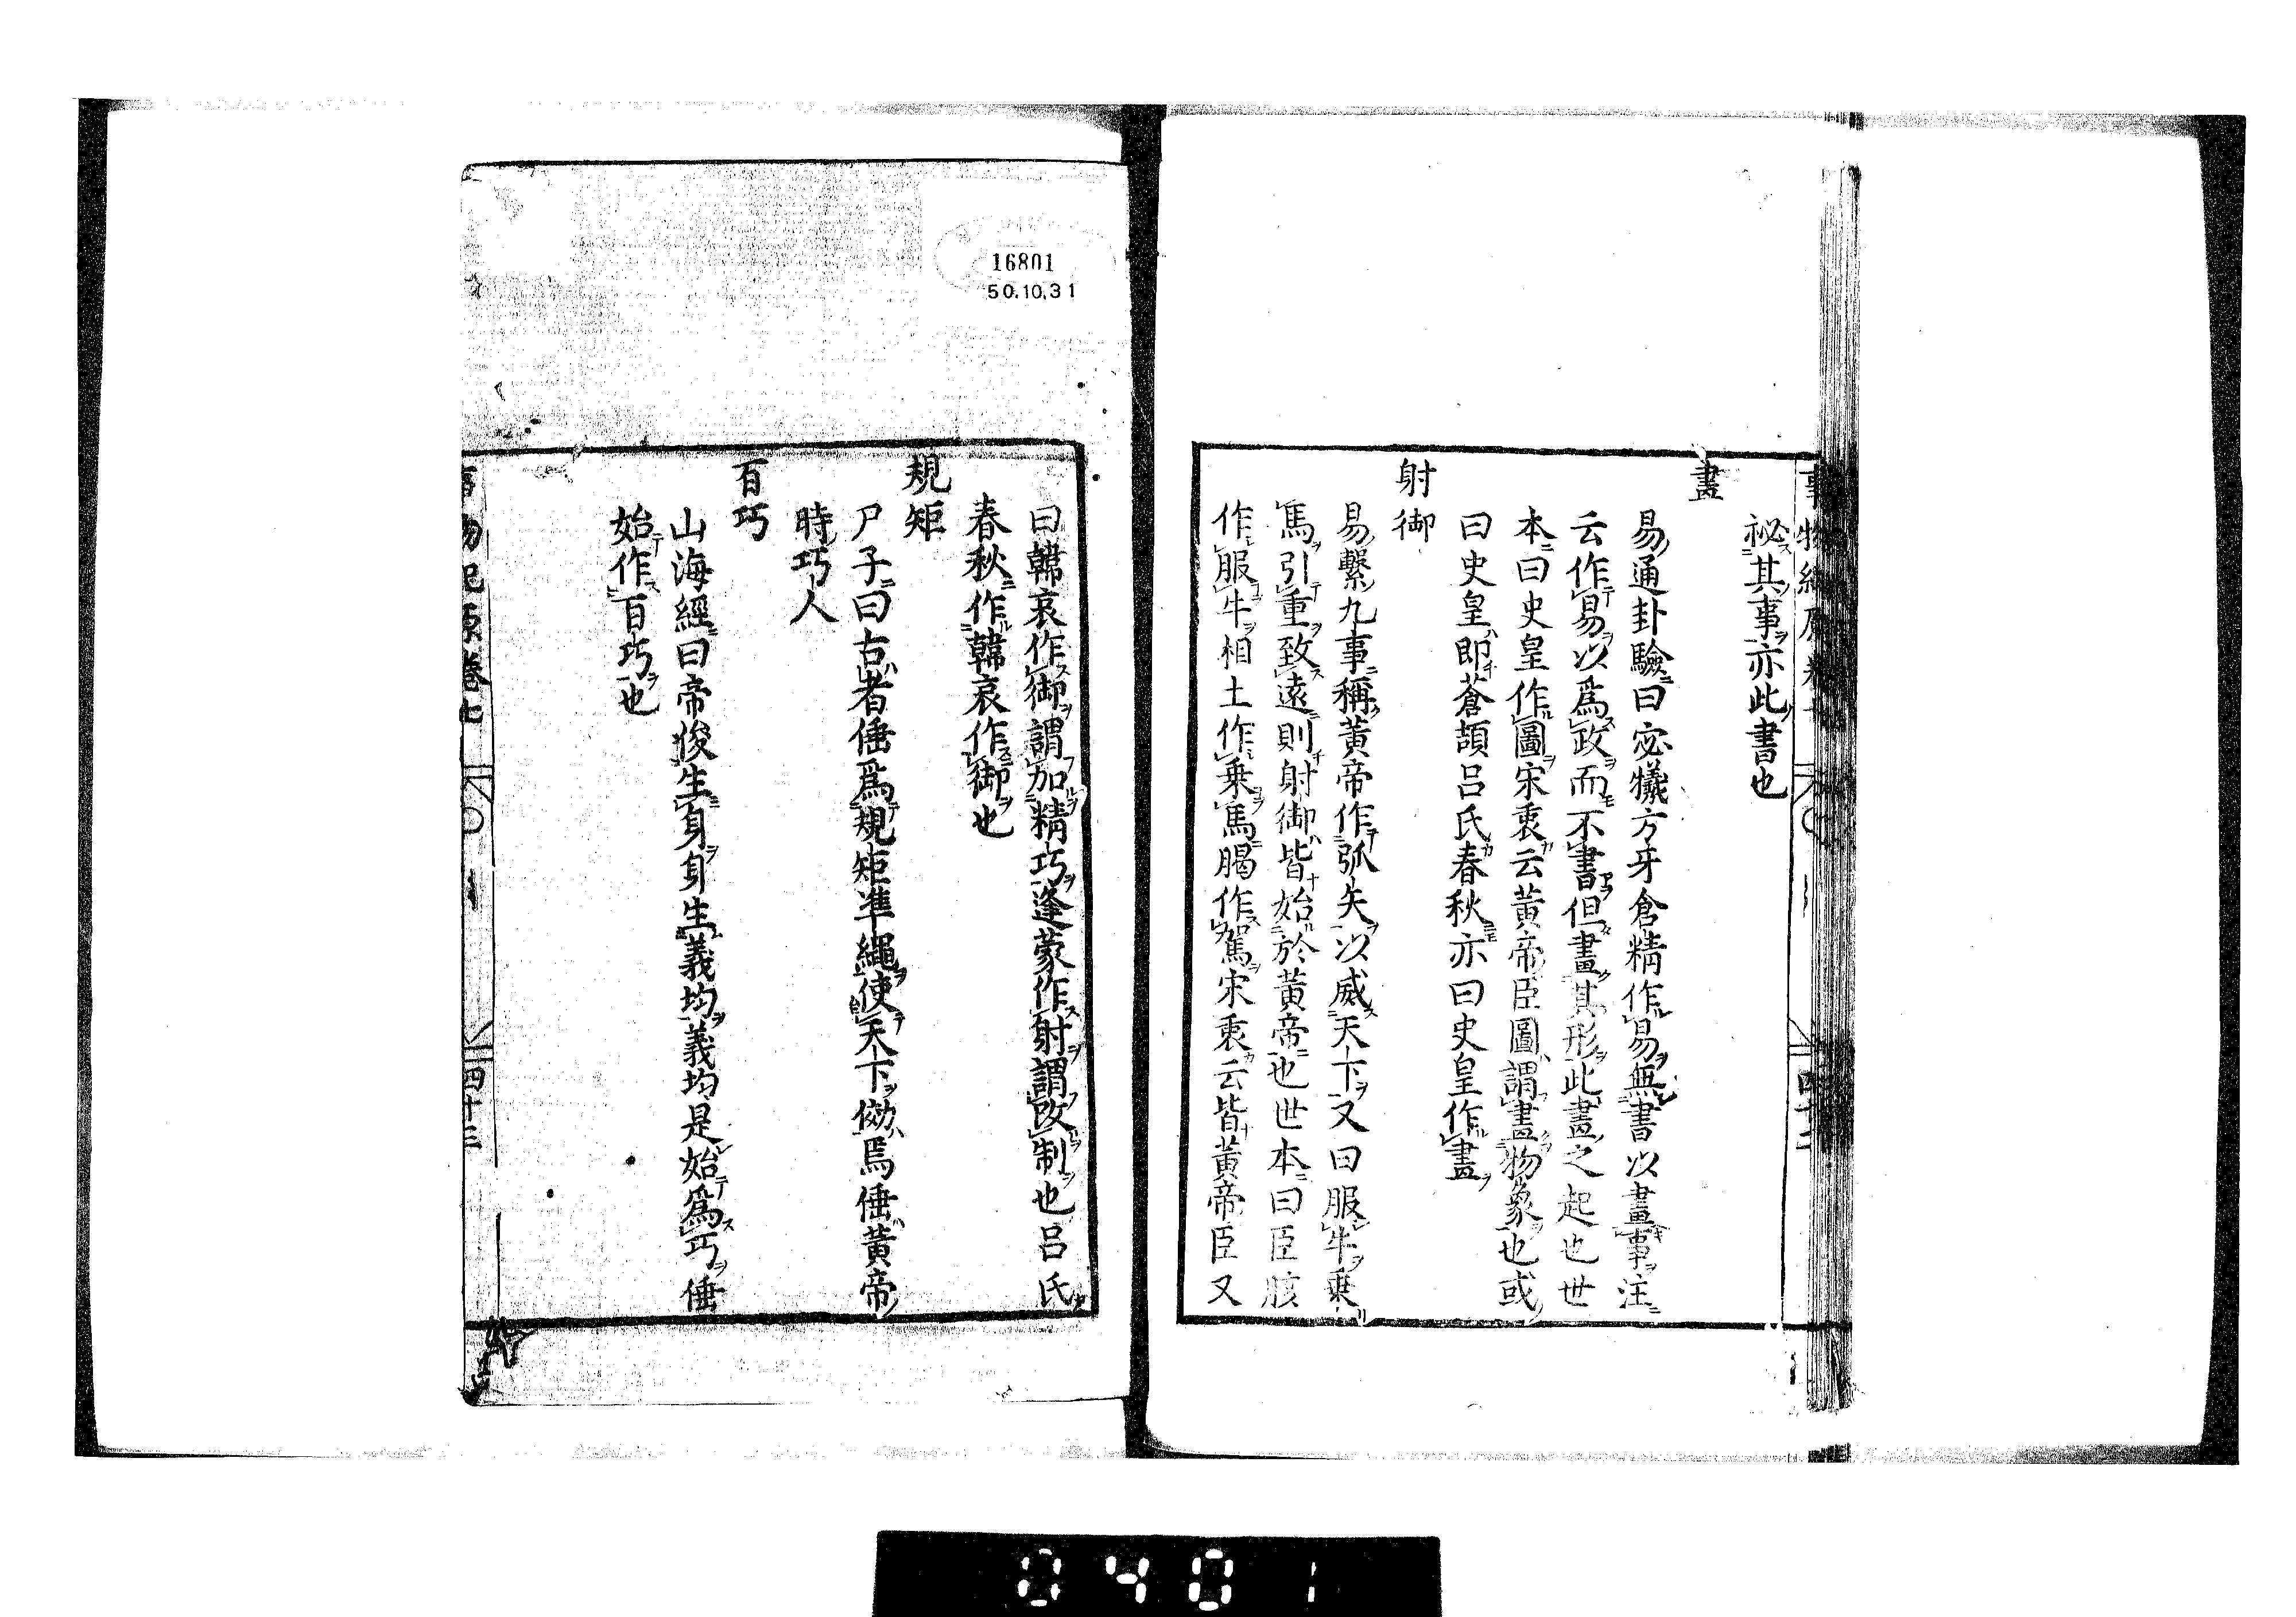 祕其事亦此書也
畫
易通卦驗曰宓犧方牙倉精作易無書以畫事注
云作易以爲政而不書但畫其形此畫之起也世
本曰史皇作圖宋衷云黃帝臣圖謂畫物象也或
曰史皇即蒼頡呂氏春秋亦曰史皇作畫
射御
易繫九事稱黃帝作弧矢以威天下又曰服牛乘
馬引重致遠則射御皆始於黃帝也世本曰臣胲
作服牛相土作乘馬腸作駕宋衷云皆黃帝臣又
16801
50.10.31
曰韓哀作御謂加精巧逢蒙作射謂改制也呂氏
春秋作韓哀作御也
規矩
尸子曰古者倕爲規矩準繩使天下傚焉倕黃帝
時巧人
百巧
山海經曰帝俊生身身生義均義均是始爲巧倕
始作百巧也
事物紀原卷七
四十三
0401